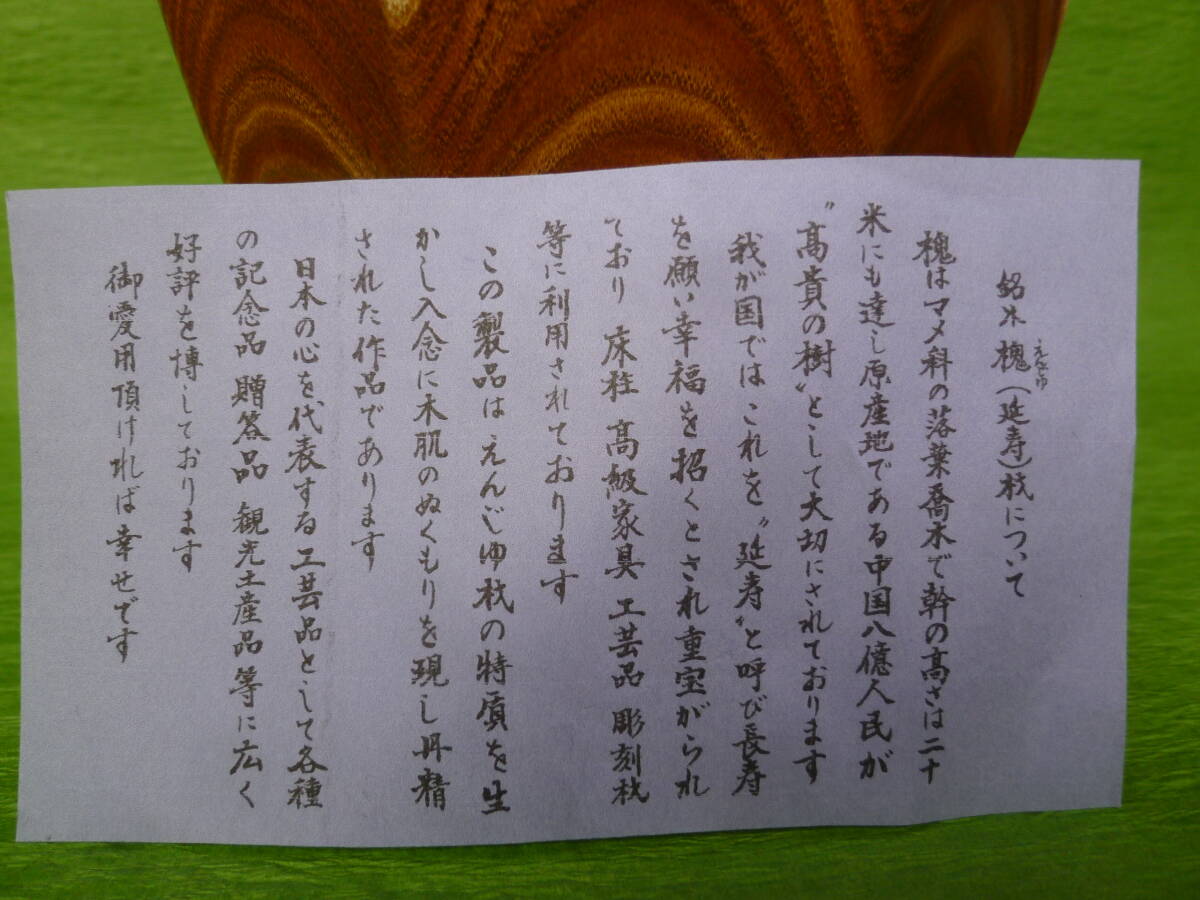 銘木槐(延寿)材について
えんじゅ
槐はマメ科の落葉喬木で幹の高さは二十
米にも達し原産地である中国八億人民が
〝高貴の樹〟として大切にされております
我が国ではこれを〝延寿〟と呼び長寿
を願い幸福を招くとされ重宝がられ
ており 床柱 高級家具 工芸品 彫刻材
等に利用されております
この製品はえんじゆ材の特質を生
かし入念に木肌のぬくもりを現し丹精
された作品であります
日本の心を代表する工芸品として各種
の記念品 贈答品 観光土産品等に広く
好評を博しております
御愛用頂ければ幸せです